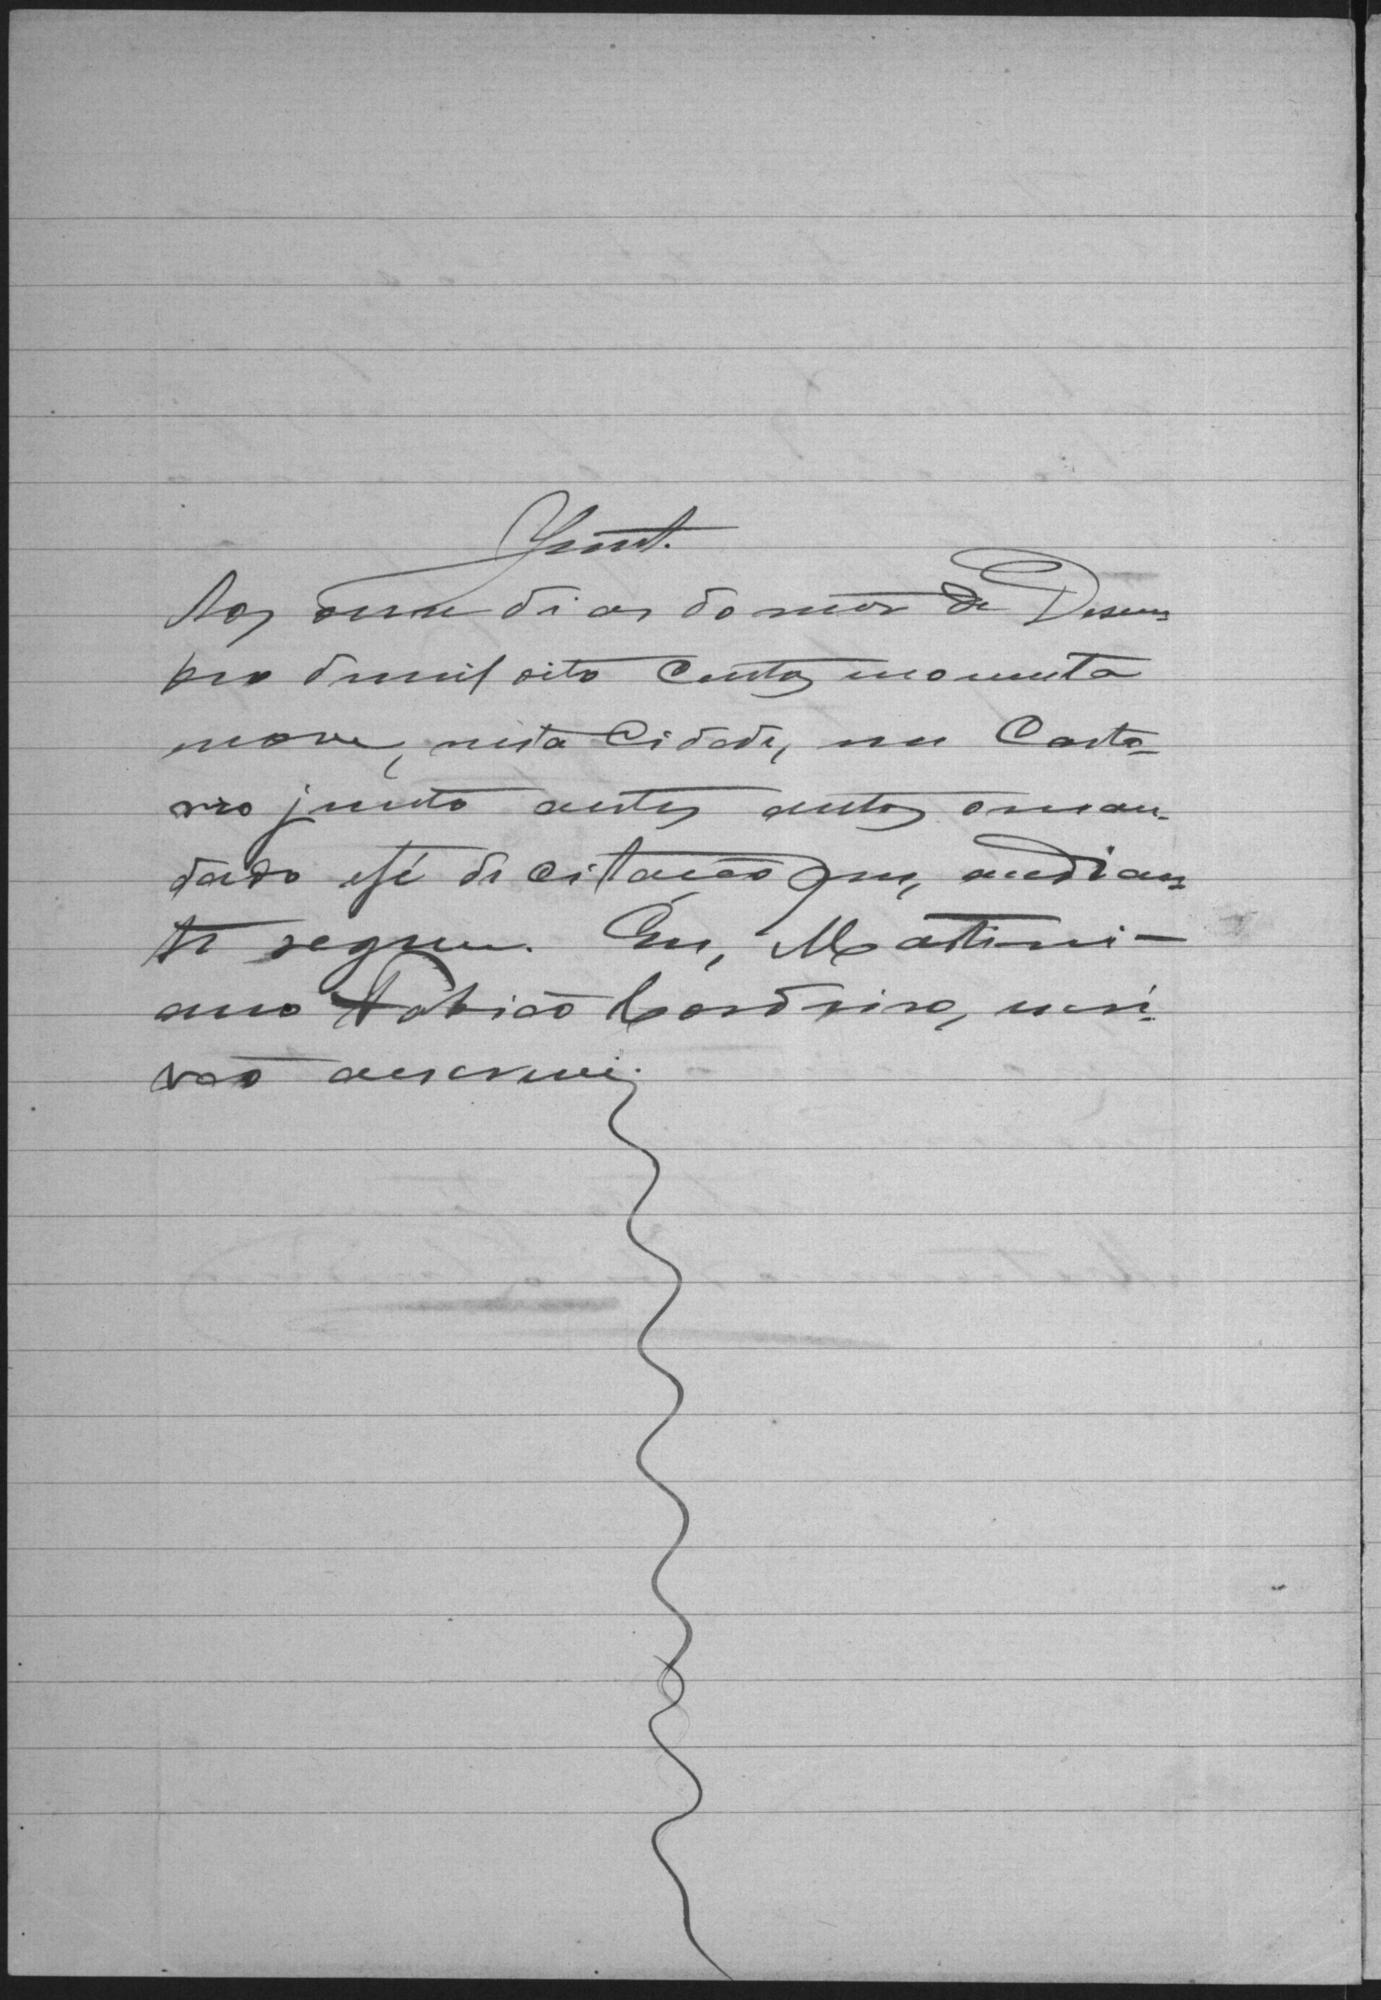 Junt.
Aos onze dias do mes de Desem-
bro demil oito centos noventa
nove, nesta Cidade, meu Carto-
rio junto aestes autos oman-
dado efé de citação que, adian-
te segue. Eu, Martini-
ano Cordeiro, escri-
vão oescrevi.